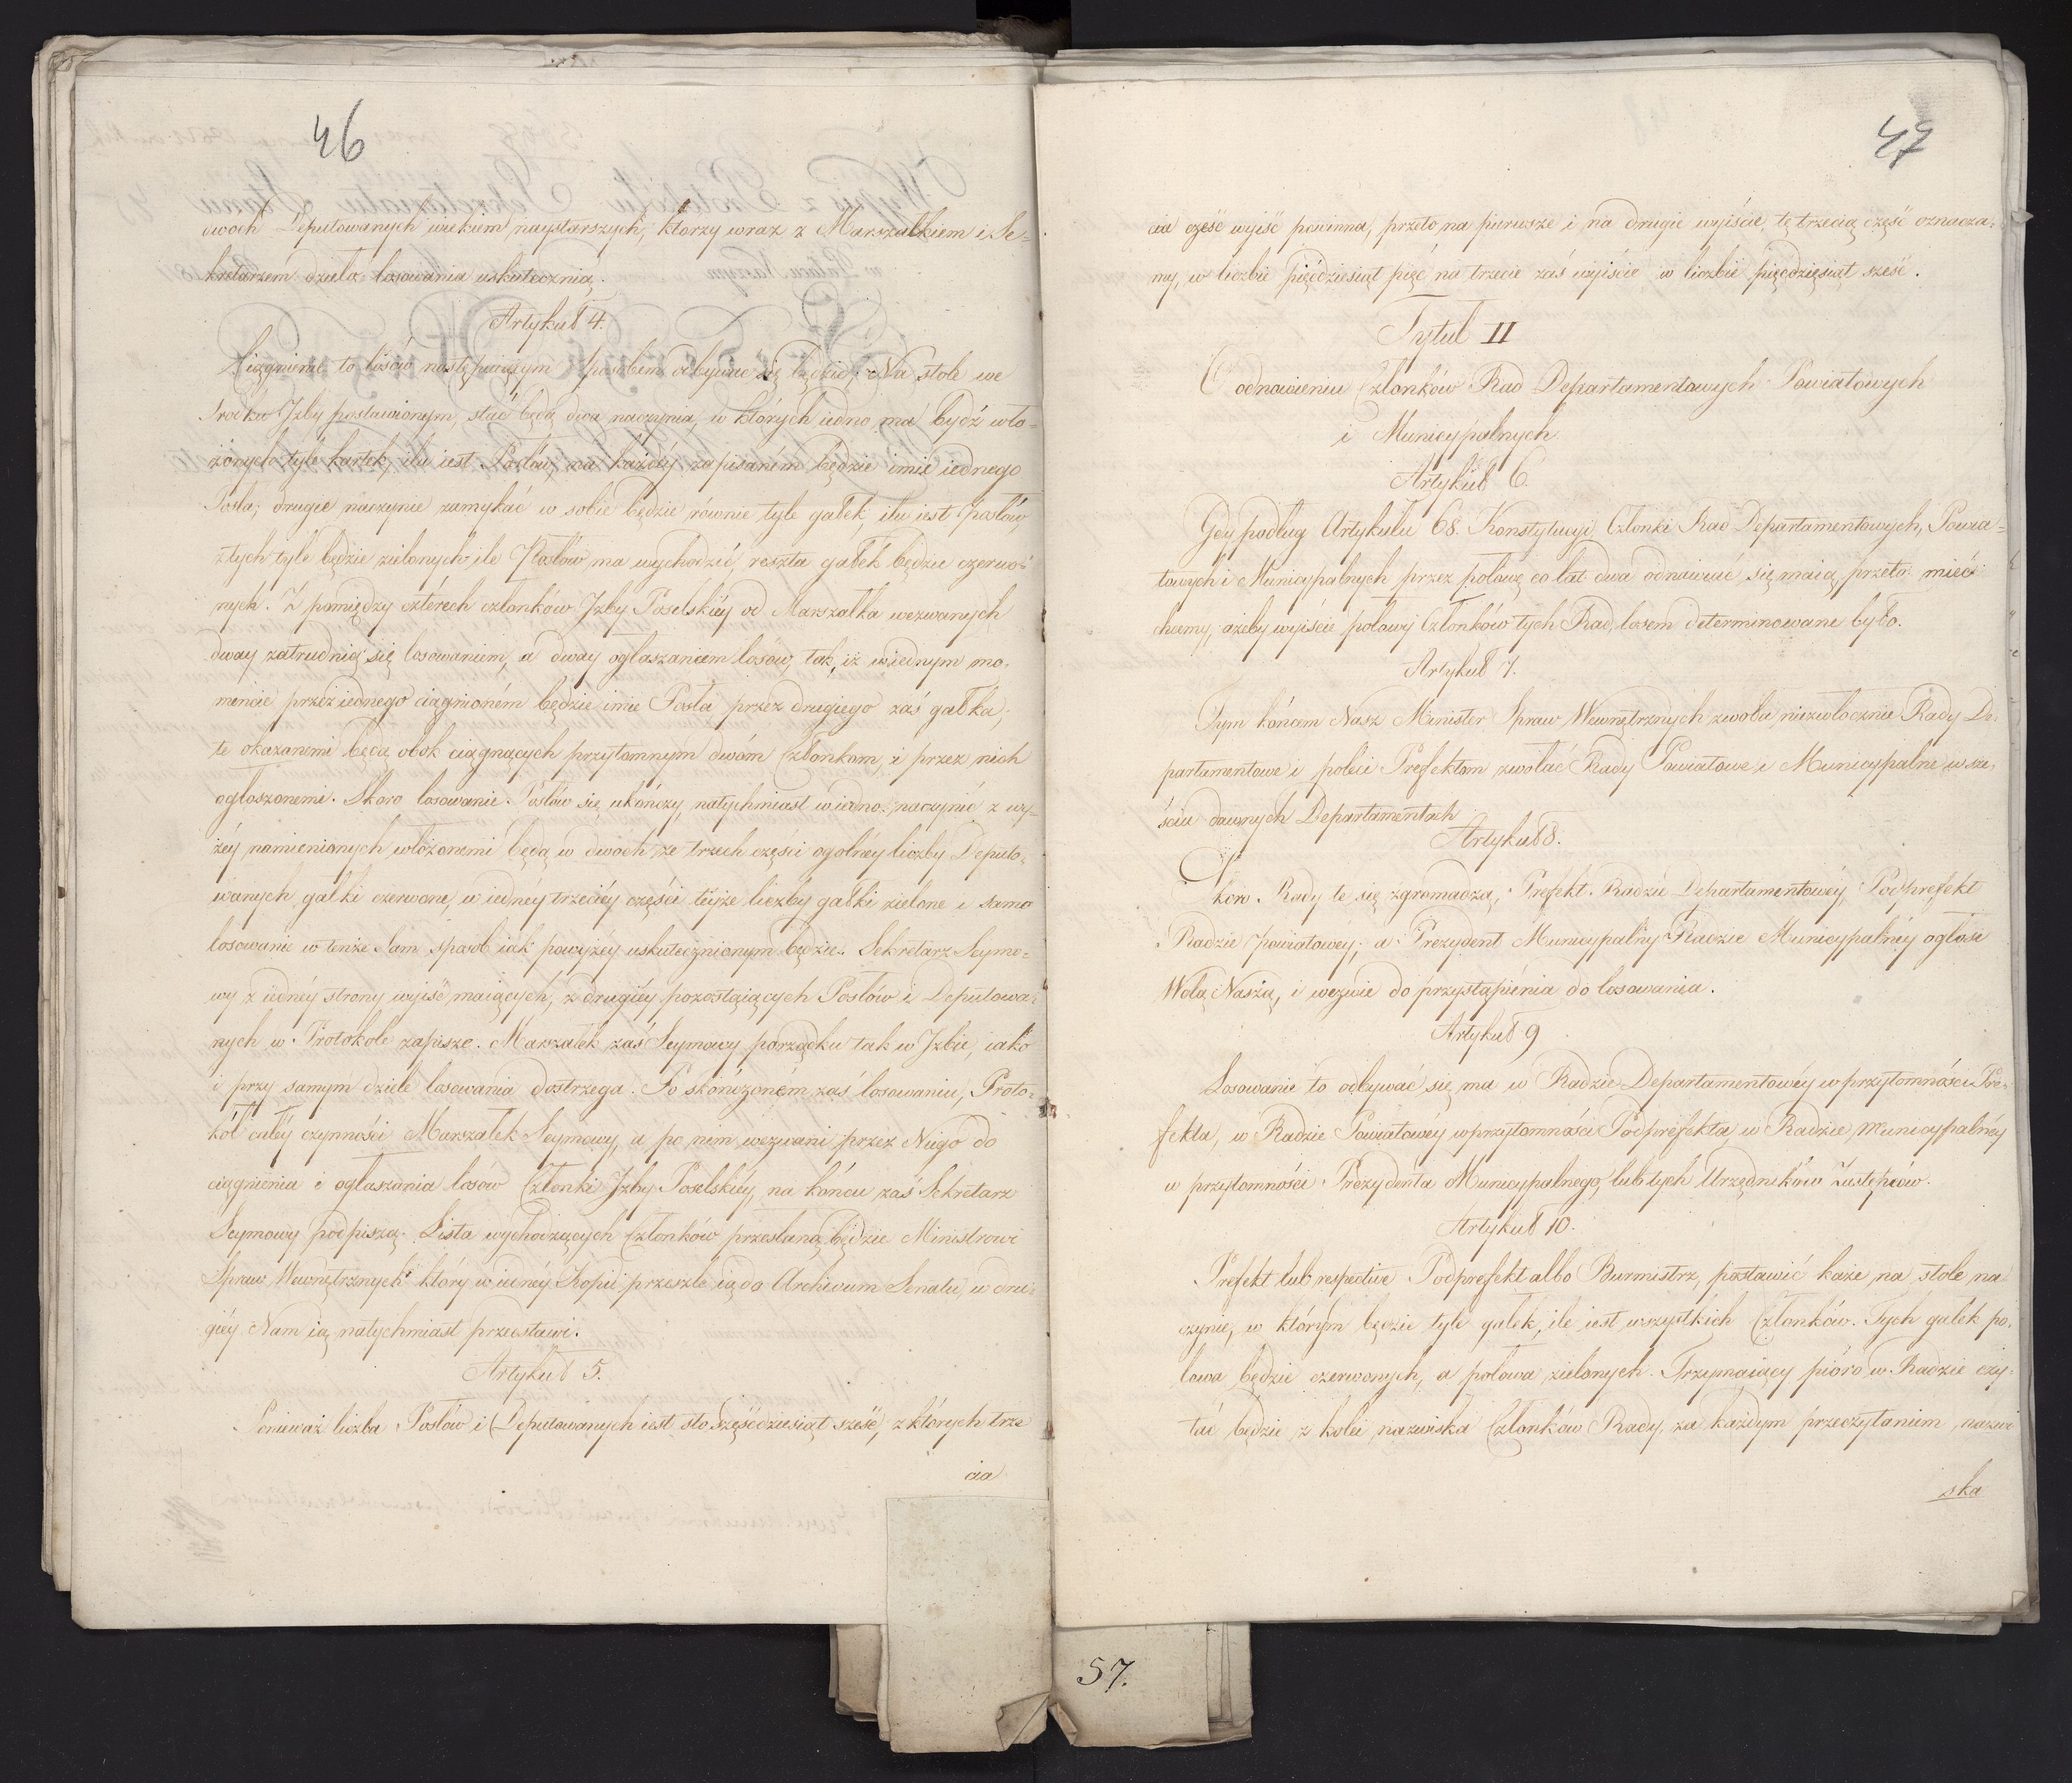 46
dwoch Deputowanych wiekiem naystarszych, ktorzy wraz z Marszałkiem i Se-
kretarzem dzieło losowania uskutecznią.
Artykuł 4.
Ciągnienie to losów następuiącym sposobem odbywać się będzie; Na stole we
srodku Izby postawionym, stać będą dwa naczynia, w których iedno ma bydź wło-
żonych tyle kartek, ilu iest Posłów, na każdéy zapisanem będzie imie iednego
Posła; drugie naczynie zamykać w sobie będzie równie tyle gałek, ilu iest posłów,
z tych tyle będzie zielonych ile Posłów ma wychodzić, reszta gałek będzie czerwo-
nych. Z pomiędzy czterech członków Izby Poselskiéy od Marszałka wezwanych
dway zatrudnią się losowaniem, a dway ogłaszaniem losów, tak, iż w iednym mo-
mencie przez iednego ciągnioném będzie imie Posła przez drugiego zaś gałka,
te okazanemi będą obok ciągnących przytomnym dwóm Członkom, i przez nich
ogłoszonemi. Skoro losowanie Posłów się ukończy, natychmiast w iedno naczynié z wy-
żéy namienionych włożonemi będą w dwóch ze trzech części ogólnéy liczby Deputo-
wanych gałki czerwone, w iednéy trzeciéy części téyże liczby gałki zielone i samo
losowanie w tenże sam sposób iak powyżéy uskutecznionym będzie. Sekretarz Seymo-
wy z iednéy strony wyiść maiących, z drugiéy pozostaiących Posłów i Deputowa-
nych w Protokole zapisze. Marszałek zaś Seymowy porządku tak w Izbie, iako
i przy samym dziele losowania dostrzega. Po skończoném zaś losowaniu, Proto-
kół całéy czynności Marszałek Seymowy, a po nim wezwani przez Niego do
ciągnienia i ogłaszania losów Członki Izby Poselskiéy, na końcu zaś Sekretarz
Seymowy podpiszą. Lista wychodzących Członków przesłaną będzie Ministrowi
Spraw Wewnętrznych który w iednéy Kopii przeszle ią do Archiwum Senatu, w dru-
giéy Nam ią natychmiast przedstawi.
Artykuł 5.
Ponieważ liczba Posłów i Deputowanych iest sto sześćdziesiąt sześć, z których trze
cia
47
cia część wyiść powinna, przeto na pierwsze i na drugie wyiście, tę trzecią część oznacza-
my, w liczbie pięćdziesiąt pięć na trzecie zaś wyiście w liczbie pięcdziesiąt sześć.
Tytuł II
O odnowieniu Członków Rad Departamentowych Powiatowych
i Municypalnych
Artykuł 6.
Gdy podług Artykułu 68. Konstytucyi Członki Rad Departamentowych, Powia-
towych i Municypalnych przez połowę co lat dwa odnawiać się maią, przeto mieć
chcemy, ażeby wyiście połowy Członków tych Rad, losem determinowane było.
Artykuł 7.
Tym końcem Nasz Minister Spraw Wewnętrznych zwoła niezwłocznie Rady De-
partamentowe i poleci Prefektom zwołać Rady Powiatowe i Municypalne w sze-
ściu dawnych Departamentach
Artykuł 8.
Skoro Rady te się zgromadzą, Prefekt Radzie Departamentowéy, Podprefekt
Radzie Powiatowey; a Prezydent Municypalny Radzie Municypalnéy ogłosi
Wolą Naszą, i wezwie do przystąpienia do losowania.
Artykuł 9
Losowanie to odbywać się ma w Radzie Departamentowéy w przytomności Pre-
fekta, w Radzie Powiatowéy w przytomności Podprefekta, w Radzie Municypalnéy
w przytomności Prezydenta Municypalnego, lub tych Urzędników Zastępców.
Artykuł 10.
Prefekt lub respective Podprefekt albo Burmistrz, postawić każe na stole na-
czynie, w którym będzie tyle gałek, ile iest wszystkich Członków. Tych gałek po-
łowa będzie czerwonych, a połowa zielonych. Trzymaiący pióro w Radzie czy-
tać będzie z kolei nazwiska Członków Rady, za każdym przeczytaniem nazwi
ska
57.